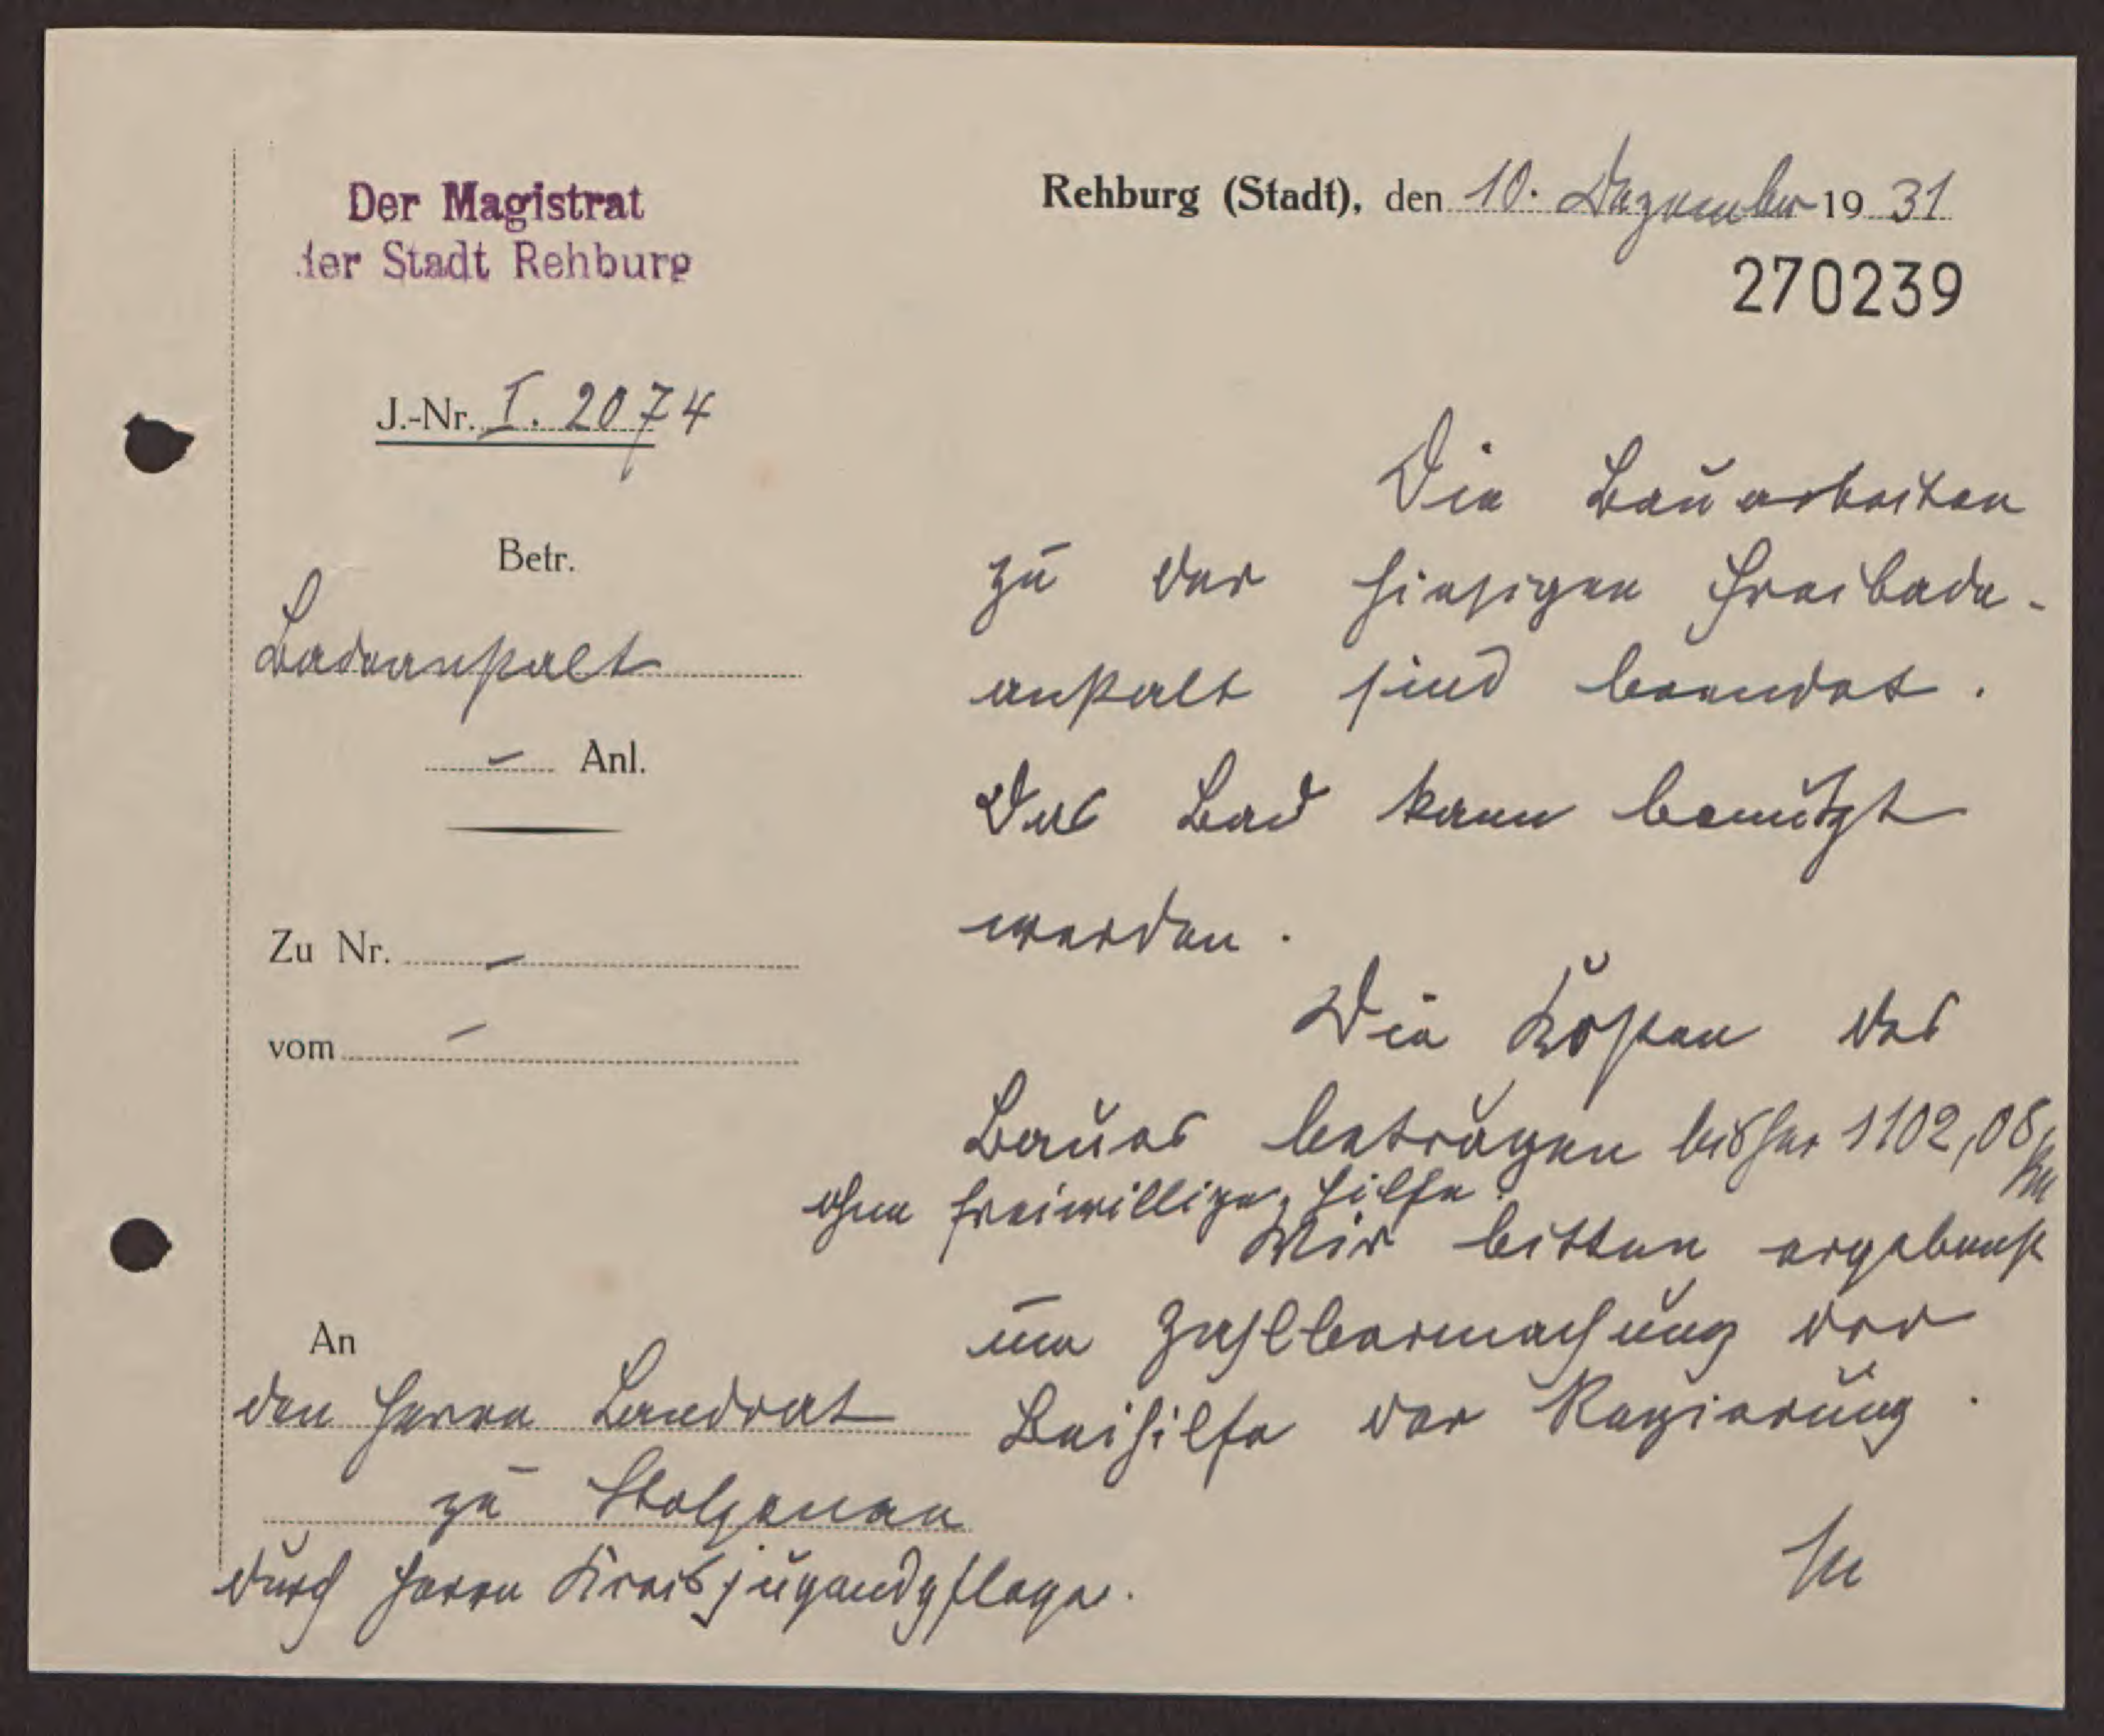 Der Magistrat
der Stadt Rehburg
Rehburg (Stadt), den 10. Dezember 1931
270239
J.-Nr. I. 2074
Betr.
Badeanstalt
- Anl.
Zu Nr. -
vom -
Die Bauarbeiten
zu der hiesigen Freibade-
anstalt sind beendet.
Das Bad kann benutzt
werden.
Die Kosten des
Baues betragen bisher 1102,08 RM
ohne freiwillige Hilfe.
Wir bitten ergebenst
um Zahlbarmachung der
Beihilfe der Regierung.
An
den Herrn Landrat
zu Stolzenau
durch Herrn Kreisjugendpfleger.